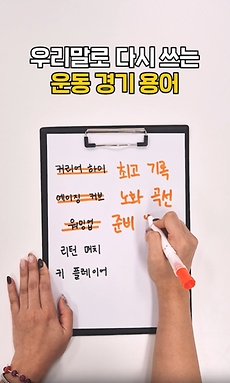 우리말로 다시 쓰는
운동 경기 용어
커리어 하이 최고 기록
에이징 커브 노화 곡선
워밍업 준비
리턴 매치
키 플레이어